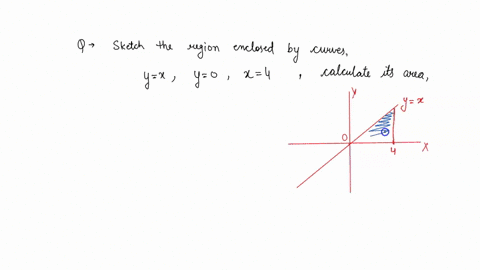 Q → Sketch the region enclosed by curves.
y=x , y=0 , x=4 , calculate its area,
y
y=x
0
4
x